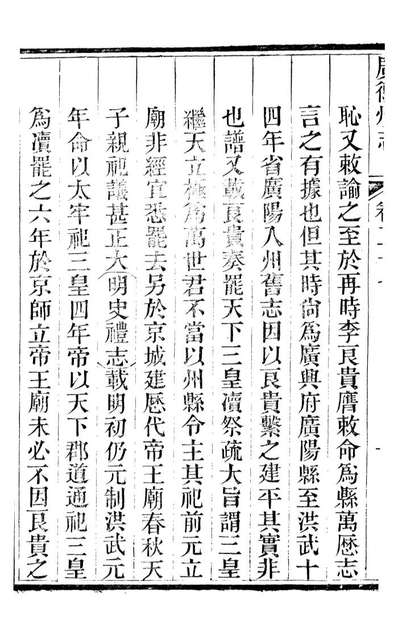 廣德州志
恥又敕諭之至於再時李良貴膺敕命爲縣萬歷志
言之有據也但其時尙爲廣興府廣陽縣至洪武十
四年省廣陽入州舊志因以良貴繫之建平其實非
也譜又載良貴奏罷天下三皇瀆祭疏大旨謂三皇
繼天立極爲萬世君不當以州縣令主其祀前元立
廟非經宜悉罷去另於京城建歷代帝王廟春秋天
子親祀議甚正大明史禮志載明初仍元制洪武元
年命以太牢祀三皇四年帝以天下郡道通祀三皇
爲瀆罷之六年於京師立帝王廟未必不因良貴之